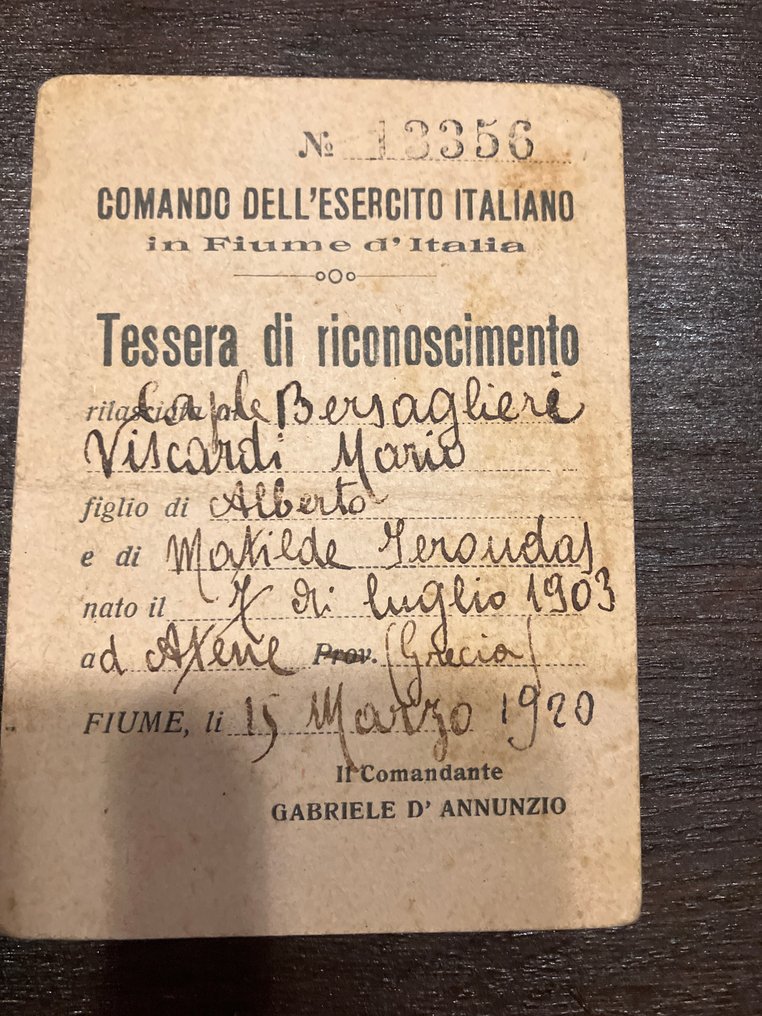 № 13356
COMANDO DELL'ESERCITO ITALIANO
in Fiume d'Italia
Tessera di riconoscimento
rilasciata al Cap.le Bersaglieri
Viscardi Mario
figlio di Alberto
e di Matilde Geroudas
nato il 7 di luglio 1903
ad Atene Prov. (Grecia)
FIUME, li 15 Marzo 1920
Il Comandante
GABRIELE D' ANNUNZIO